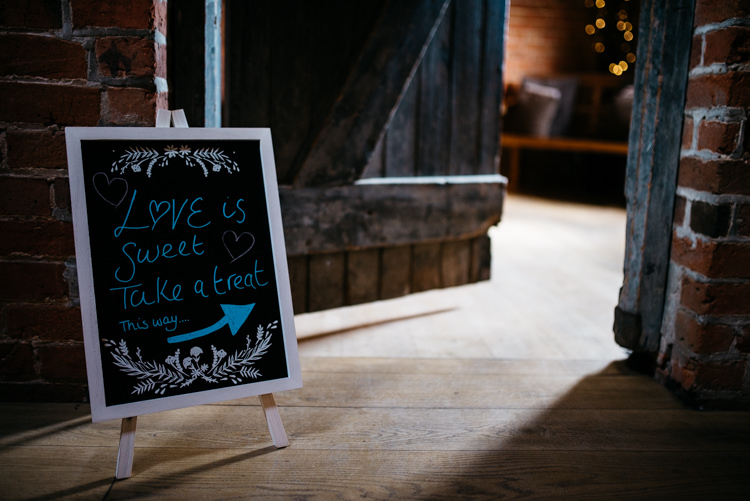 LOVE is
Sweet
Take a treat
This way....